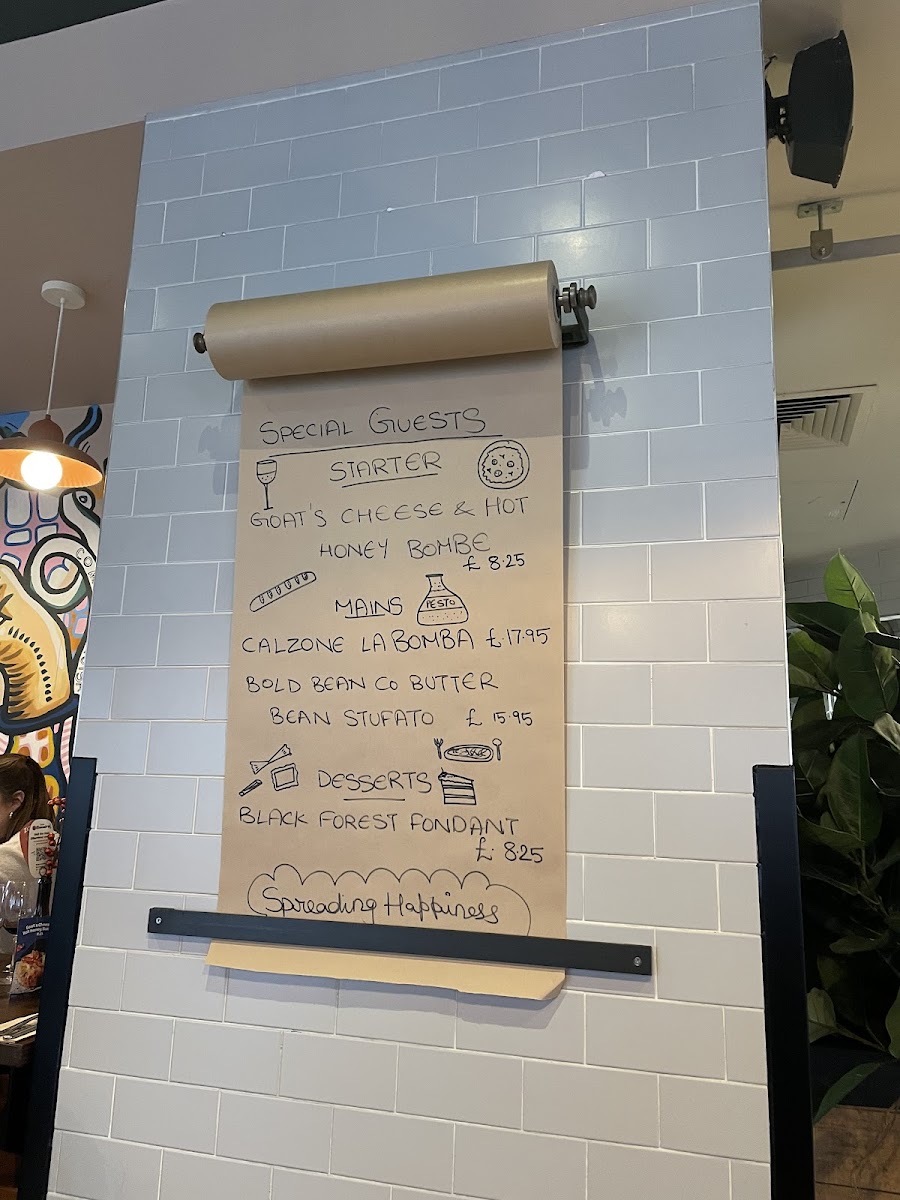 SPECIAL GUESTS
STARTER
GOAT'S CHEESE & HOT
HONEY BOMBE
£ 8.25
MAINS
PESTO
CALZONE LA BOMBA £17.95
BOLD BEAN CO BUTTER
BEAN STUFATO £ 15.95
DESSERTS
BLACK FOREST FONDANT
£ 8.25
Spreading Happiness